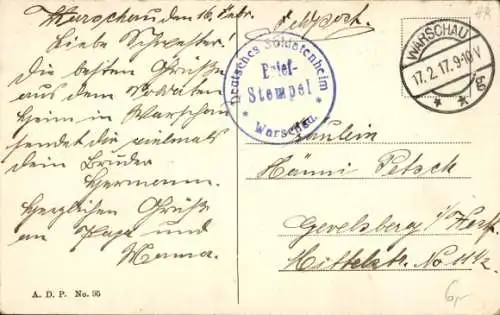 Warschau den 16. Febr.
Liebe Schwester!
Die besten Grüße
aus dem Soldaten
heim in Warschau
sendet dir vielmals
dein Bruder
Hermann.
Herzlichen Gruß
an Papa und
Mama.
A. D. P. No. 95
Feldpost.
Deutsches Soldatenheim
Brief-
Stempel
* Warschau. *
WARSCHAU
17.2.17.9-10V
* *
Fräulein
Hänni Petsch
Gevelsberg i/Westf.
Mittelstr. No 11½
6,-